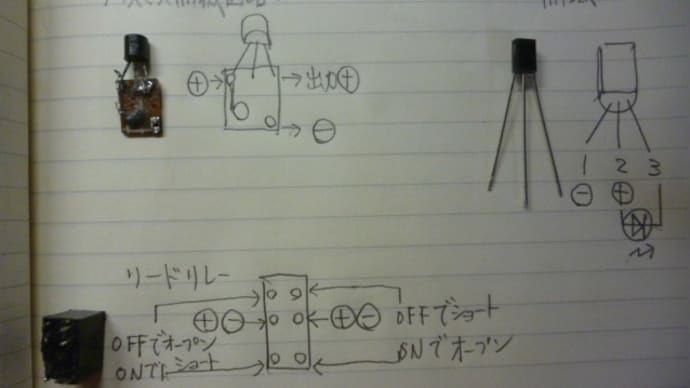 ⊕ 出力⊕
⊖
1 2 3
⊖ ⊕
リードリレー
⊕⊖ ⊕⊖
OFFでオープン
ONでショート
OFFでショート
ONでオープン